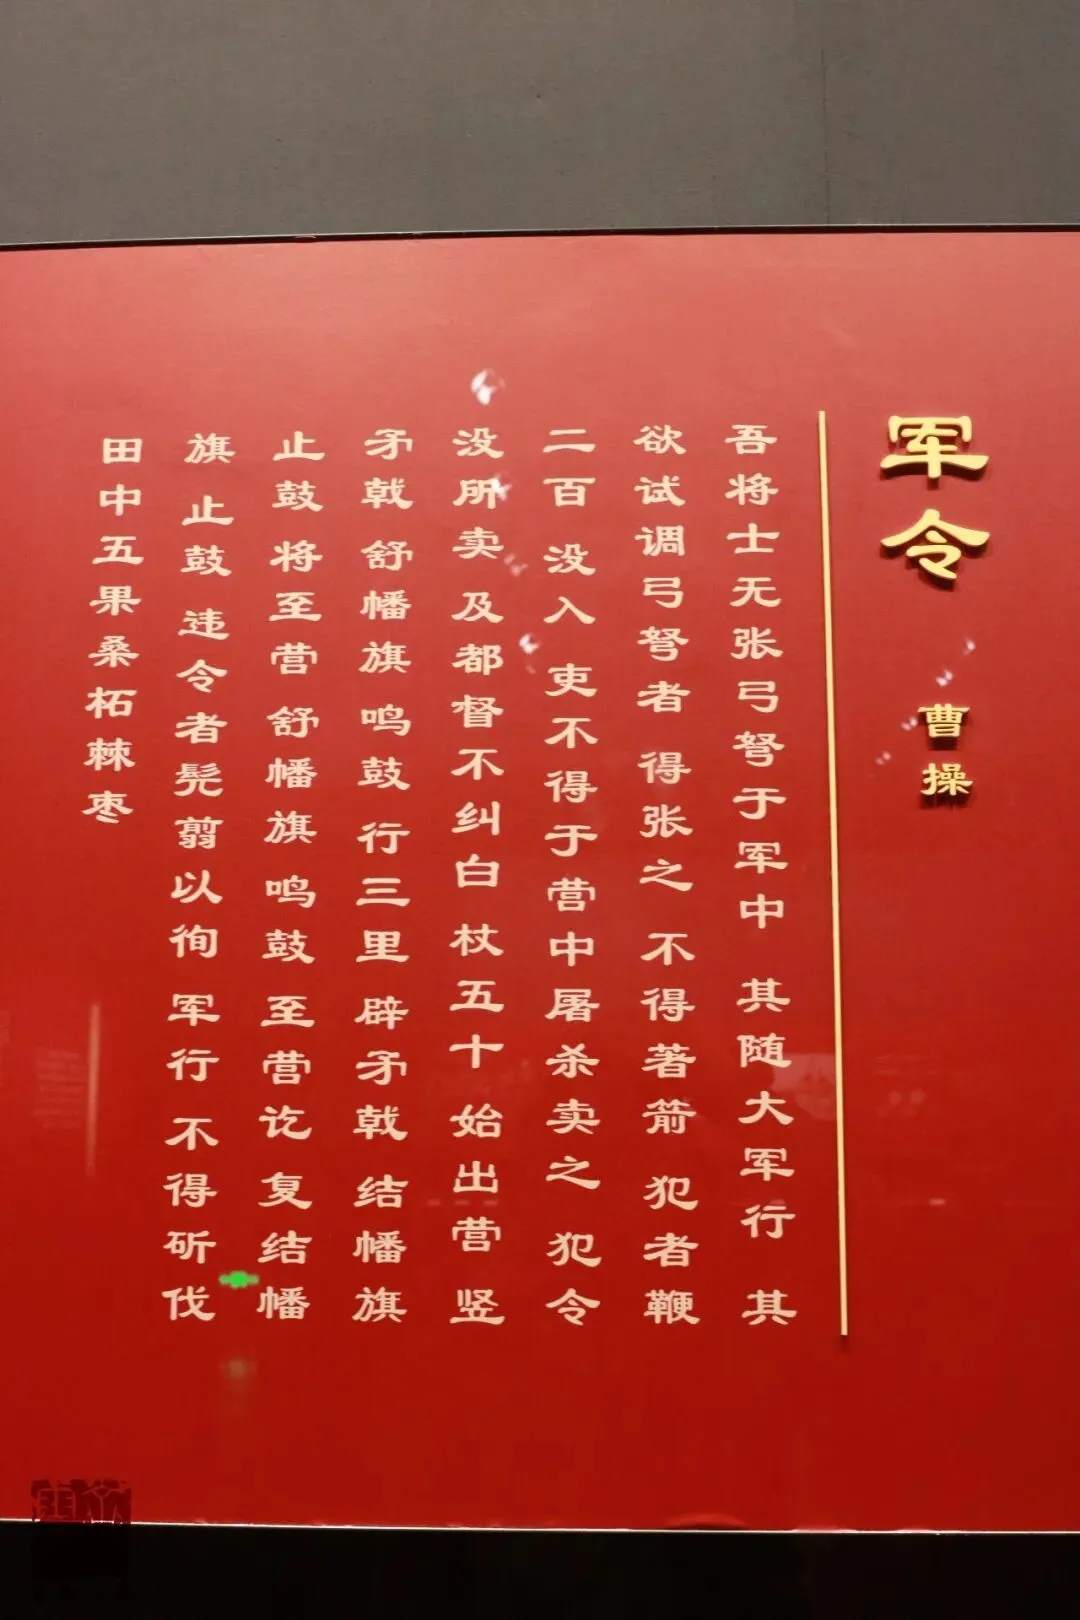 军令
曹操
吾将士无张弓弩于军中 其随大军行 其
欲试调弓弩者 得张之 不得著箭 犯者鞭
二百 没入 吏不得于营中屠杀卖之 犯令
没所卖 及都督不纠白 杖五十 始出营 竖
矛戟 舒幡旗 鸣鼓 行三里 辟矛戟 结幡旗
止鼓 将至营 舒幡旗 鸣鼓 至营讫 复结幡
旗 止鼓 违令者 髡翦以徇 军行 不得斫伐
田中五果桑柘棘枣